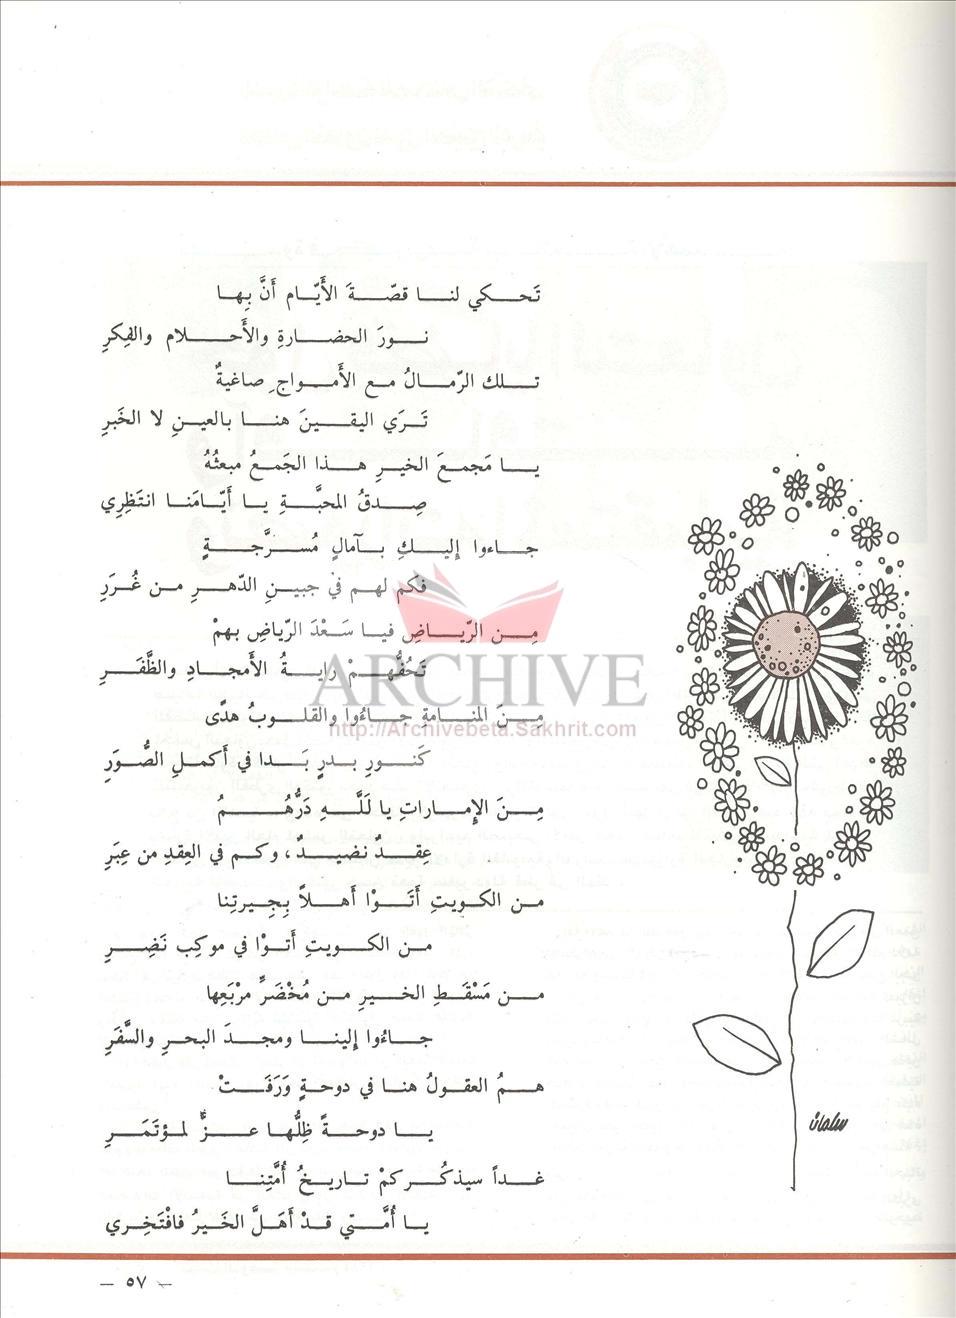 تَحكي لنا قصّةَ الأَيّام أَنَّ بِها
نورَ الحضارةِ والأَحلام والفِكرِ
تلك الرّمالُ مع الأَمواجِ صاغيةٌ
تَرَي اليقينَ هنا بالعينِ لا الخَبرِ
يا مَجمعَ الخيرِ هذا الجَمعُ مبعثُهُ
صِدقُ المحبَّةِ يا أَيّامَنا انتَظِرِي
جاءوا إليكِ بآمالٍ مُسرَّجةٍ
فكم لهم في جبينِ الدّهرِ من غُرَرِ
مِن الرّياضِ فيا سَعْدَ الرّياضِ بهمْ
تَحُفُّهمْ رايةُ الأَمجادِ والظَّفَرِ
مِنَ المنامةِ جاءُوا والقلوبُ هدًى
كَنورِ بدرٍ بَدا في أَكملِ الصُّوَرِ
مِنَ الإِماراتِ يا لَلَّهِ دَرُّهُمُ
عِقدٌ نضيدٌ، وكم في العِقدِ من عِبَرِ
من الكويتِ أَتَوْا أَهلاً بِجِيرتِنا
من الكويتِ أَتوْا في موكِبٍ نَضِرِ
من مَسْقَطِ الخيرِ من مُخْضَرِّ مرْبَعِها
جاءُوا إلينا ومجدَ البحرِ والسَّفَرِ
همُ العقولُ هنا في دوحةٍ وَرَفَتْ
يا دوحةً ظِلُّها عزٌّ لمؤتَمَرِ
غداً سيذكُركمْ تاريخُ أُمَّتِنا
يا أُمَّتي قدْ أَهَلَّ الخَيرُ فافْتَخِري
سلمان
ARCHIVE
http://Archivebeta.Sakhrit.com
— ٥٧ —